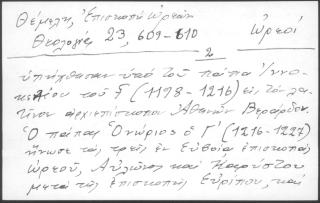 Θέμελη, Ἐπισκοπή Ὠρεῶν Ὠρεοί
Θεολογία 23, 609-610
2
ὑπήχθησαν ὑπό τοῦ πάπα Ἰννο-
κεντίου τοῦ Γ΄ (1198-1216) εἰς τόν λα-
τῖνον ἀρχιεπίσκοπον Ἀθηνῶν Βεράρδον.
Ὁ πάπας Ὁνώριος ὁ Γ΄ (1216-1227)
ἥνωσε τάς τρεῖς ἐν Εὐβοίᾳ ἐπισκοπάς
Ὠρεοῦ, Αὐλῶνος καί Καρύστου
μετά τῆς ἐπισκοπῆς Εὐρίπου, καί